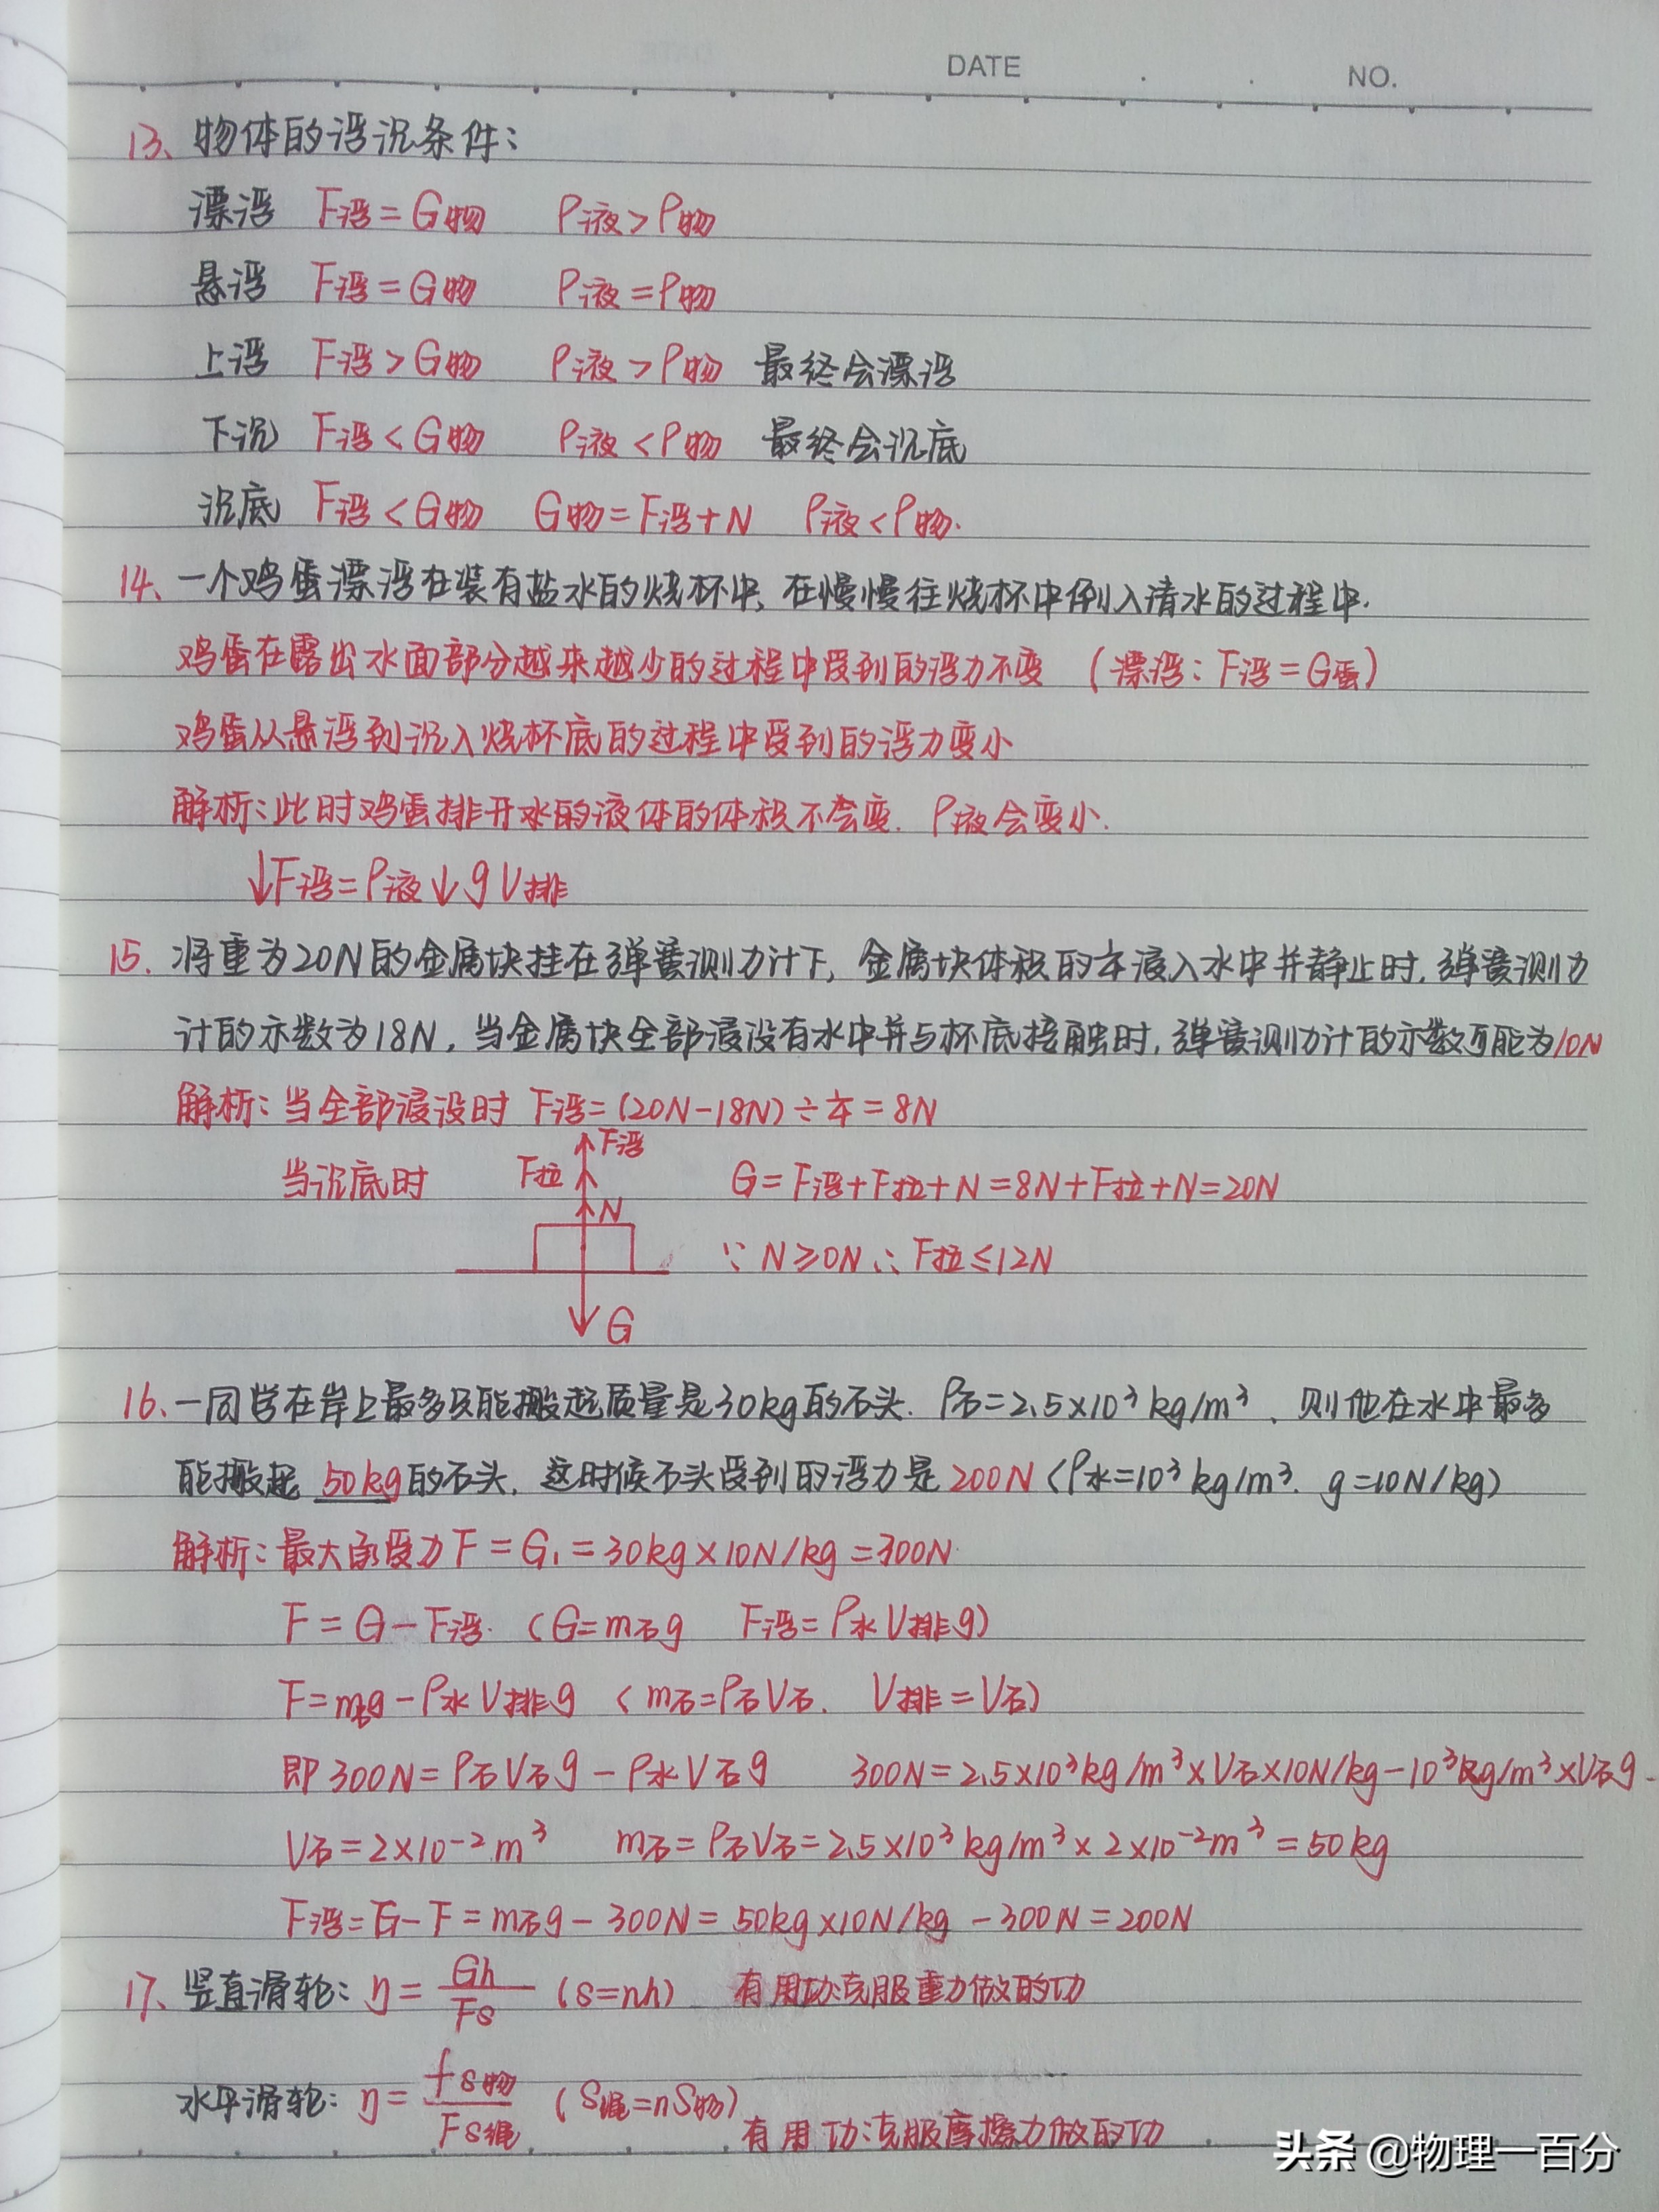 DATE
NO.
13、物体的浮沉条件：
漂浮 F浮=G物 ρ液>ρ物
悬浮 F浮=G物 ρ液=ρ物
上浮 F浮>G物 ρ液>ρ物 最终会漂浮
下沉 F浮<G物 ρ液<ρ物 最终会沉底
沉底 F浮<G物 G物=F浮+N ρ液<ρ物.
14、一个鸡蛋漂浮在装有盐水的烧杯中、在慢慢往烧杯中倒入清水的过程中.
鸡蛋在露出水面部分越来越少的过程中受到的浮力不变 (漂浮：F浮=G蛋)
鸡蛋从悬浮到沉入烧杯底的过程中受到的浮力变小
解析：此时鸡蛋排开水的液体的体积不会变. ρ液会变小.
↓F浮=ρ液↓gV排
15、将重为20N的金属块挂在弹簧测力计下，金属块体积的¼浸入水中并静止时，弹簧测力
计的示数为18N，当金属块全部浸没有水中并与杯底接触时，弹簧测力计的示数可能为10N
解析：当全部浸没时 F浮=(20N-18N)÷¼=8N
F浮
当沉底时 F拉 G=F浮+F拉+N=8N+F拉+N=20N
N
∵N≥0N ∴F拉≤12N
G
16、一同学在岸上最多只能搬起质量是30kg的石头. ρ石=2.5×10³kg/m³、则他在水中最多
能搬起 50kg的石头，这时候石头受到的浮力是200N(ρ水=10³kg/m³. g=10N/kg)
解析：最大承受力F=G₁=30kg×10N/kg=300N
F=G-F浮. (G=m石g F浮=ρ水V排g)
F=m石g-ρ水V排g (m石=ρ石V石. V排=V石)
即300N=ρ石V石g-ρ水V石g 300N=2.5×10³kg/m³×V石×10N/kg-10³kg/m³×V石g
V石=2×10⁻²m³ m石=ρ石V石=2.5×10³kg/m³×2×10⁻²m³=50kg
F浮=G-F=m石g-300N=50kg×10N/kg-300N=200N
17、竖直滑轮：η=Gh/Fs (s=nh) 有用功:克服重力做的功
水平滑轮：η=fs物/Fs绳 (S绳=nS物) 有用功:克服摩擦力做的功
头条@物理一百分